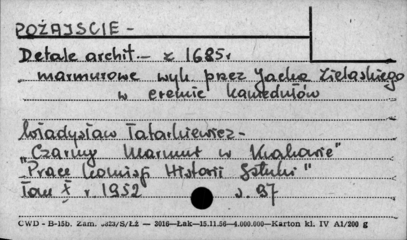 POŻAJSCIE -
Detale archit. - z 1685r
marmurowe wyk. przez Jacka Zielaskiego
w eremie kamedułów
Władysław Tatarkiewicz -
"Czarny Marmur w Krakowie"
"Prace Komisji Historii Sztuki"
Tom X r. 1952 s. 97
CWD - B-15b. Zam. /S/Łż — 3016—Łak—15.11.56—4.000.000—Karton kl. IV A1/200 g